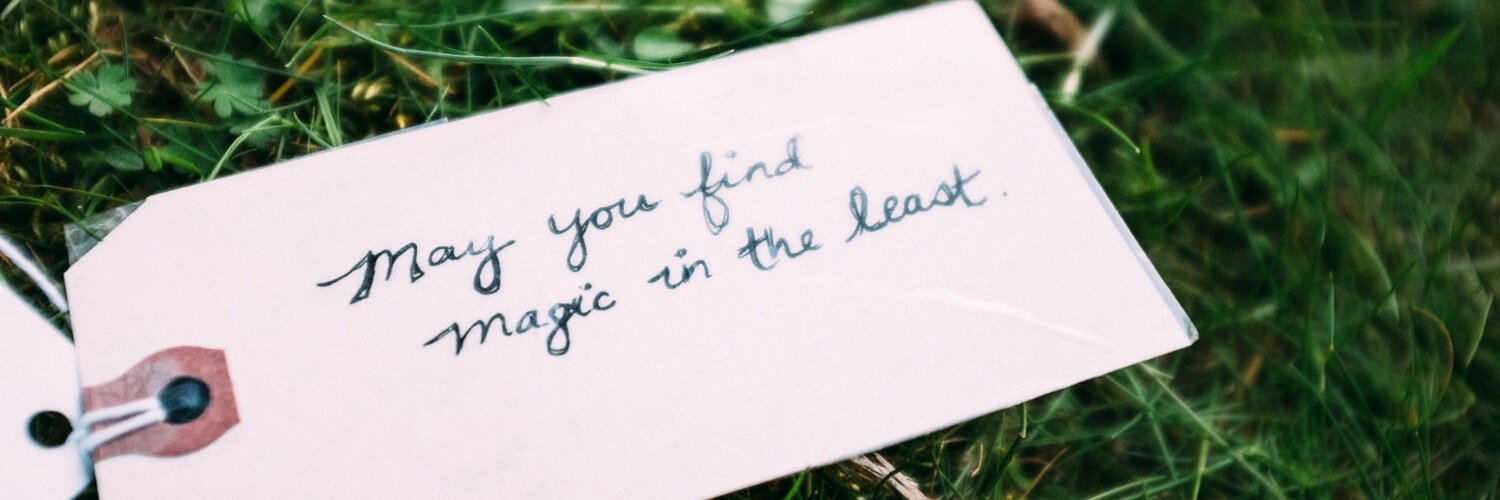 May you find
magic in the least.